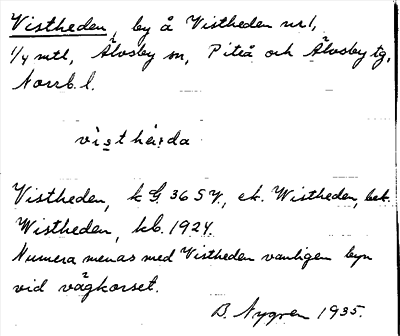 Vistheden, by å Vistheden nr 1,
1/4 mtl, Älvsby sn, Piteå och Älvsby tg,
Norrb. l.
Vistheden, k 36 SV, ek. Wistheden, bek.
Wistheden, kb. 1924.
Numera menas med Vistheden vanligen byn
vid vägkorset.
B. Nygren 1935.